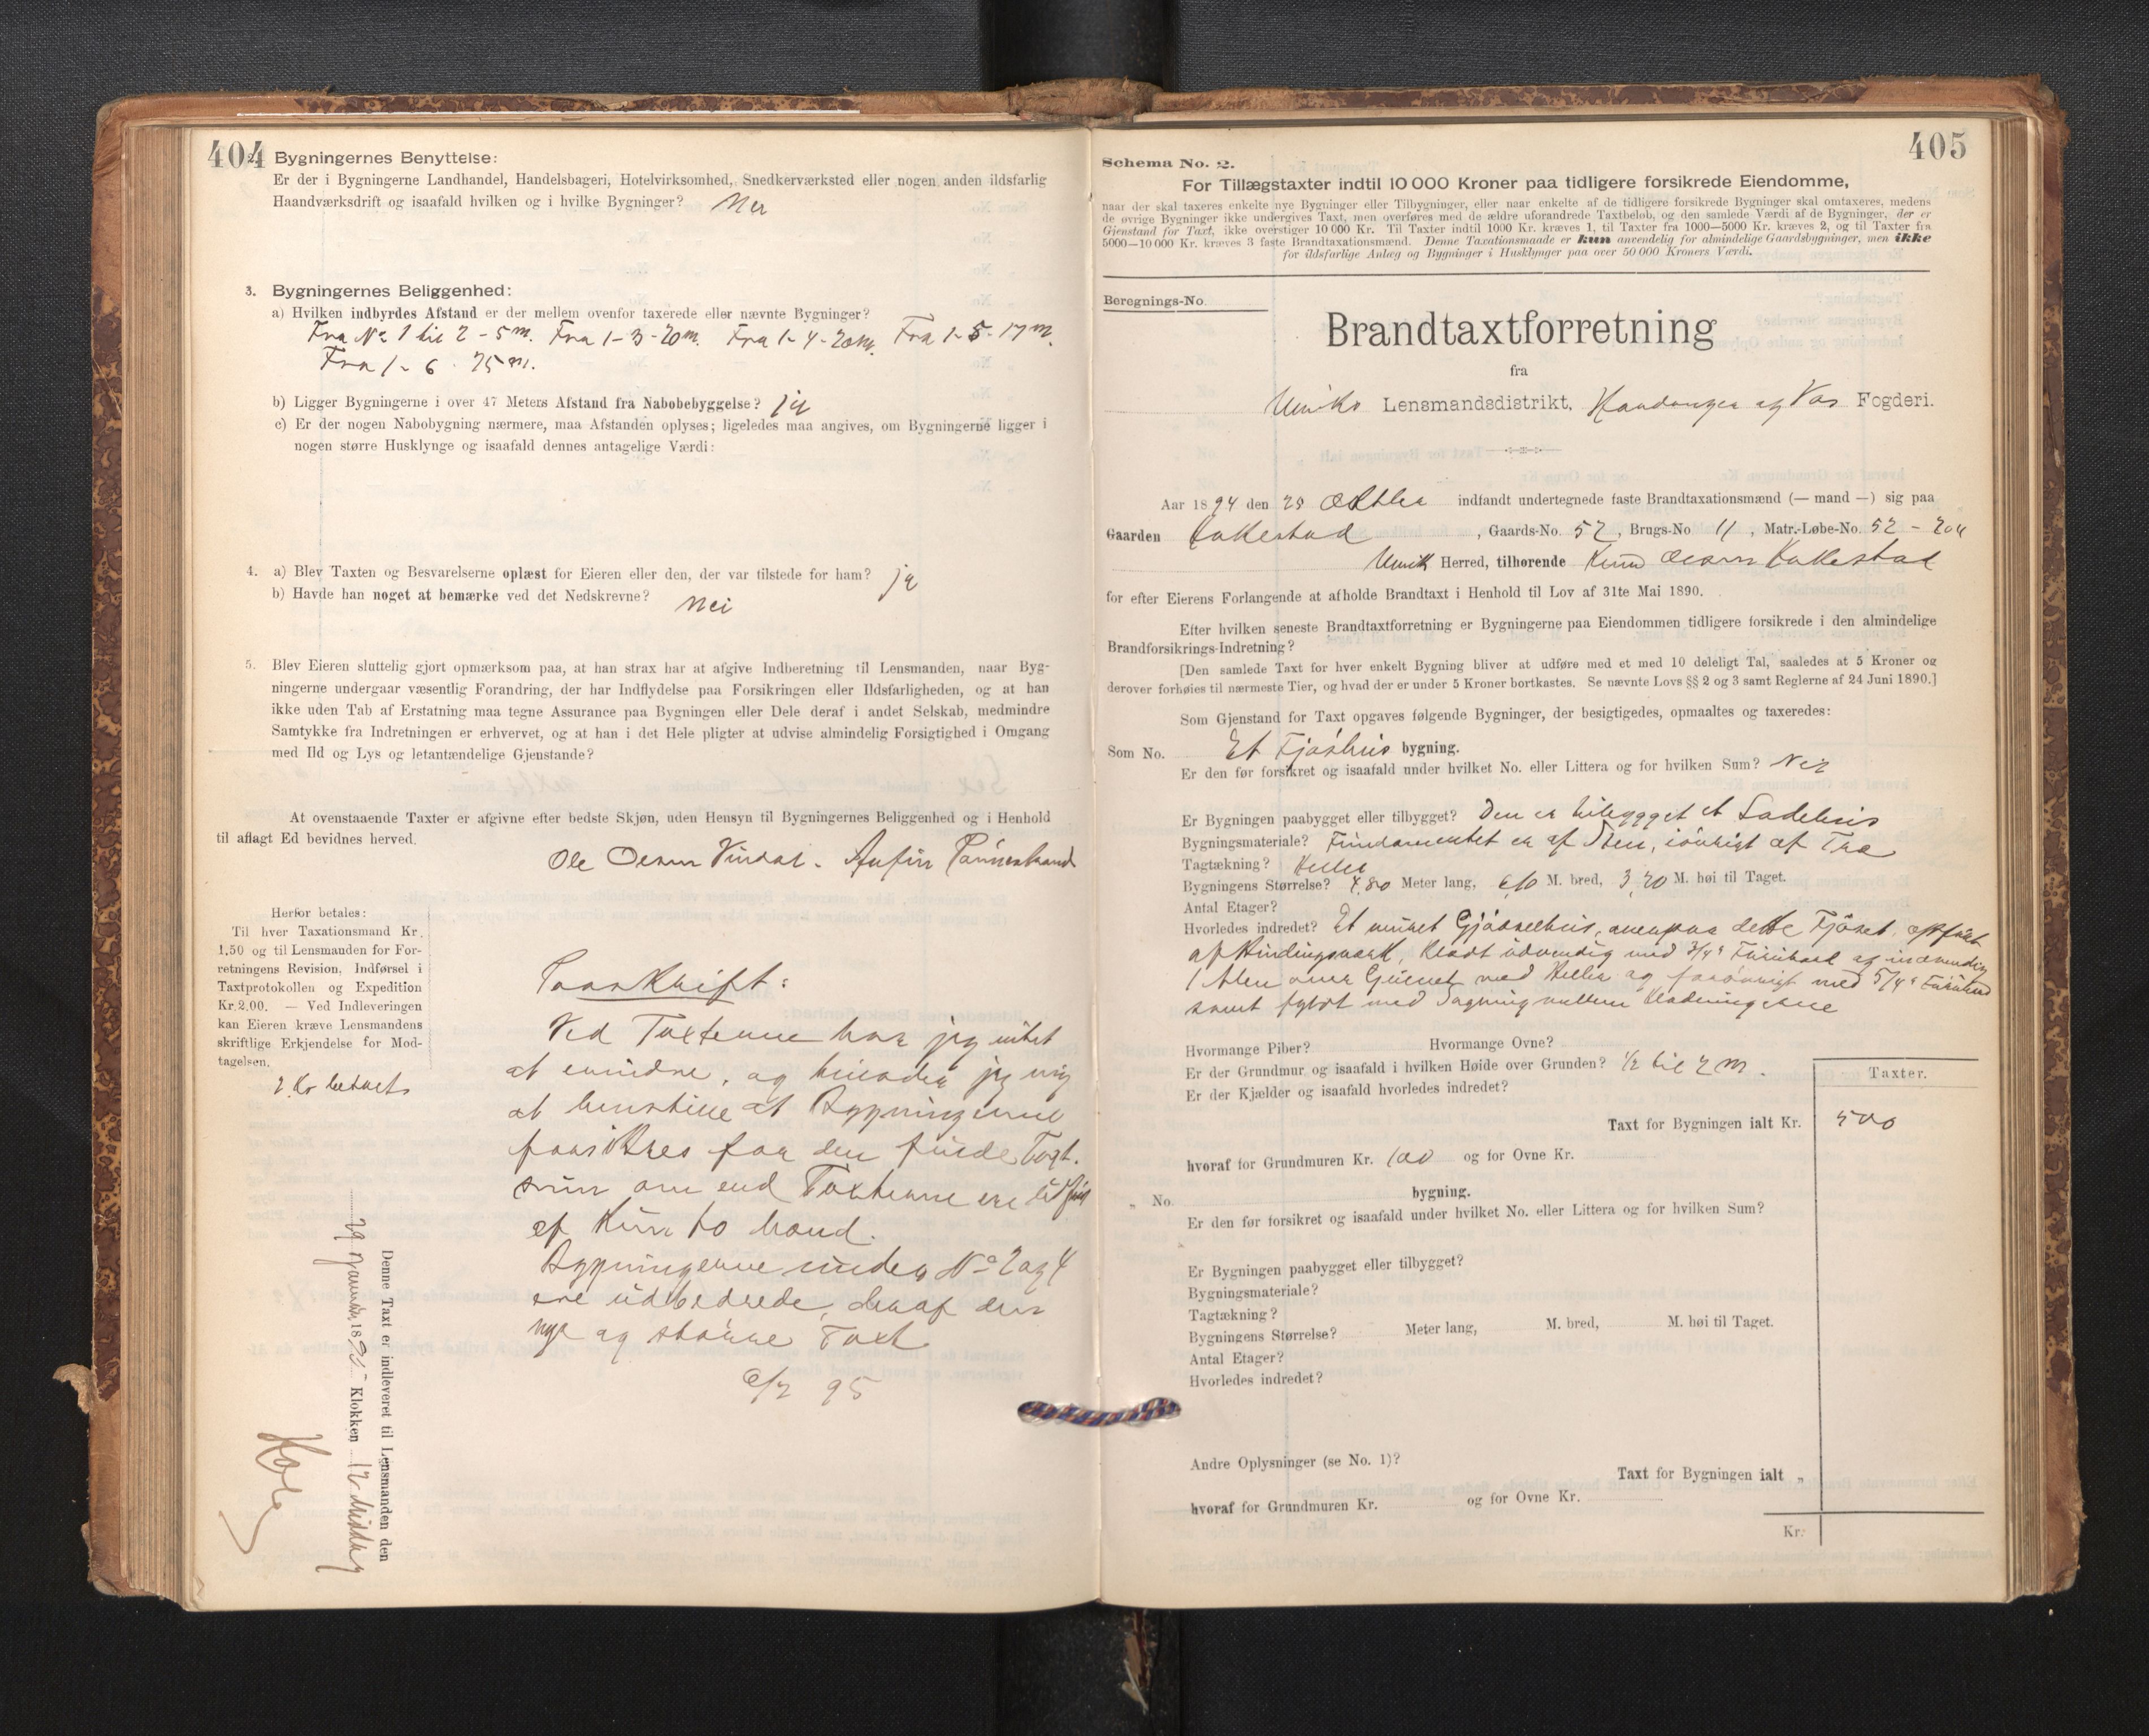 404
2. Bygningernes Benyttelse:
Er der i Bygningerne Landhandel, Handelsbageri, Hotelvirksomhed, Snedkerværksted eller nogen anden ildsfarlig
Haandværksdrift og isaafald hvilken og i hvilke Bygninger? Nei
3. Bygningernes Beliggenhed:
a) Hvilken indbyrdes Afstand er der mellem ovenfor taxerede eller nævnte Bygninger?
Fra No 1 til 2 - 5 m. Fra 1 - 3 - 20 m. Fra 1 - 4 - 20 m. Fra 1 - 5 - 17 m.
Fra 1 - 6 - 75 m.
b) Ligger Bygningerne i over 47 Meters Afstand fra Nabobebyggelse? ja
c) Er der nogen Nabobygning nærmere, maa Afstanden oplyses; ligeledes maa angives, om Bygningerne ligger i
nogen større Husklynge og isaafald dennes antagelige Værdi:
4. a) Blev Taxten og Besvarelserne oplæst for Eieren eller den, der var tilstede for ham? ja
b) Havde han noget at bemærke ved det Nedskrevne? Nei
5. Blev Eieren sluttelig gjort opmærksom paa, at han strax har at afgive Indberetning til Lensmanden, naar Byg-
ningerne undergaar væsentlig Forandring, der har Indflydelse paa Forsikringen eller Ildsfarligheden, og at han
ikke uden Tab af Erstatning maa tegne Assurance paa Bygningen eller Dele deraf i andet Selskab, medmindre
Samtykke fra Indretningen er erhvervet, og at han i det Hele pligter at udvise almindelig Forsigtighed i Omgang
med Ild og Lys og letantændelige Gjenstande?
At ovenstaaende Taxter er afgivne efter bedste Skjøn, uden Hensyn til Bygningernes Beliggenhed og i Henhold
til aflagt Ed bevidnes herved.
Ole Olsen Vindal. Anfin
Herfor betales:
Til hver Taxationsmand Kr.
1,50 og til Lensmanden for For-
retningens Revision, Indførsel i
Taxtprotokollen og Expedition
Kr. 2,00. — Ved Indleveringen
kan Eieren kræve Lensmandens
skriftlige Erkjendelse for Mod-
tagelsen.
2 Kr betalt
Paaskrift:
Ved Taxterne har jeg intet
at erindre, og tillader jeg mig
at henstille at Bygningerne
forsikres for den fulde Taxt-
sum om end Taxterne ere
af kun to Mænd.
Bygningerne under No 2 og 4
ere udbedrede, deraf den
nye og større Taxt
6/2 95
Denne Taxt er indleveret til Lensmanden den
29 Januar 1895 Klokken 12 Middag
405
Schema No. 2.
For Tillægstaxter indtil 10 000 Kroner paa tidligere forsikrede Eiendomme,
naar der skal taxeres enkelte nye Bygninger eller Tilbygninger, eller naar enkelte af de tidligere forsikrede Bygninger skal omtaxeres, medens
de øvrige Bygninger ikke undergives Taxt, men overføres med de ældre uforandrede Taxtbeløb, og den samlede Værdi af de Bygninger, der er
Gjenstand for Taxt, ikke overstiger 10 000 Kr. Til Taxter indtil 1000 Kr. kræves 1, til Taxter fra 1000—5000 Kr. kræves 2, og til Taxter fra
5000—10 000 Kr. kræves 3 faste Brandtaxationsmænd. Denne Taxationsmaade er kun anvendelig for almindelige Gaardsbygninger, men ikke
for ildsfarlige Anlæg og Bygninger i Husklynger paa over 50 000 Kroners Værdi.
Beregnings-No.
Brandtaxtforretning
fra
Ulviks Lensmandsdistrikt, Hardanger og Vos Fogderi.
Aar 1894 den 25 Oktbr indfandt undertegnede faste Brandtaxationsmænd (— mand —) sig paa
Gaarden Kallestad, Gaards-No. 52, Brugs-No 11, Matr.-Løbe-No. 52 -
Ulvik Herred, tilhørende Knud Olsen Kallestad
for efter Eierens Forlangende at afholde Brandtaxt i Henhold til Lov af 31te Mai 1890.
Efter hvilken seneste Brandtaxtforretning er Bygningerne paa Eiendommen tidligere forsikrede i den almindelige
Brandforsikrings-Indretning?
[Den samlede Taxt for hver enkelt Bygning bliver at udføre med et med 10 deleligt Tal, saaledes at 5 Kroner og
derover forhøies til nærmeste Tier, og hvad der er under 5 Kroner bortkastes. Se nævnte Lovs §§ 2 og 3 samt Reglerne af 24 Juni 1890.]
Som Gjenstand for Taxt opgaves følgende Bygninger, der besigtigedes, opmaaltes og taxeredes:
Som No. Et Fjøshus bygning.
Er den før forsikret og isaafald under hvilket No. eller Littera og for hvilken Sum? Nei
Er Bygningen paabygget eller tilbygget? Den er tilbygget et Ladehus
Bygningsmateriale? Fundamentet er af Sten, iøvrigt af Træ
Tagtækning? Heller
Bygningens Størrelse? 7,80 Meter lang, 6,10 M. bred, 3,20 M. høi til Taget.
Antal Etager?
Hvorledes indredet? Et muret Gjødselhus, ovenpaa dette Fjøset, opført
af Bindingsværk, klædt udvendig med 3/4" Furubord og indvendig
1 Alen over Gulvet med Heller og forøvrigt med 5/4" Furubord
samt fyldt med Sagmug mellem Klædningerne
Hvormange Piber? Hvormange Ovne?
Er der Grundmur og isaafald i hvilken Høide over Grunden? 1/2 til 2 m.
Er der Kjælder og isaafald hvorledes indredet?
Taxter.
Taxt for Bygningen ialt Kr. 500
hvoraf for Grundmuren Kr. 100 og for Ovne Kr.
„ No. bygning.
Er den før forsikret og isaafald under hvilket No. eller Littera og for hvilken Sum?
Er Bygningen paabygget eller tilbygget?
Bygningsmateriale?
Tagtækning?
Bygningens Størrelse? Meter lang, M. bred, M. høi til Taget.
Antal Etager?
Hvorledes indredet?
Andre Oplysninger (se No. 1)?
Taxt for Bygningen ialt „
hvoraf for Grundmuren Kr. og for Ovne Kr.
Kr.